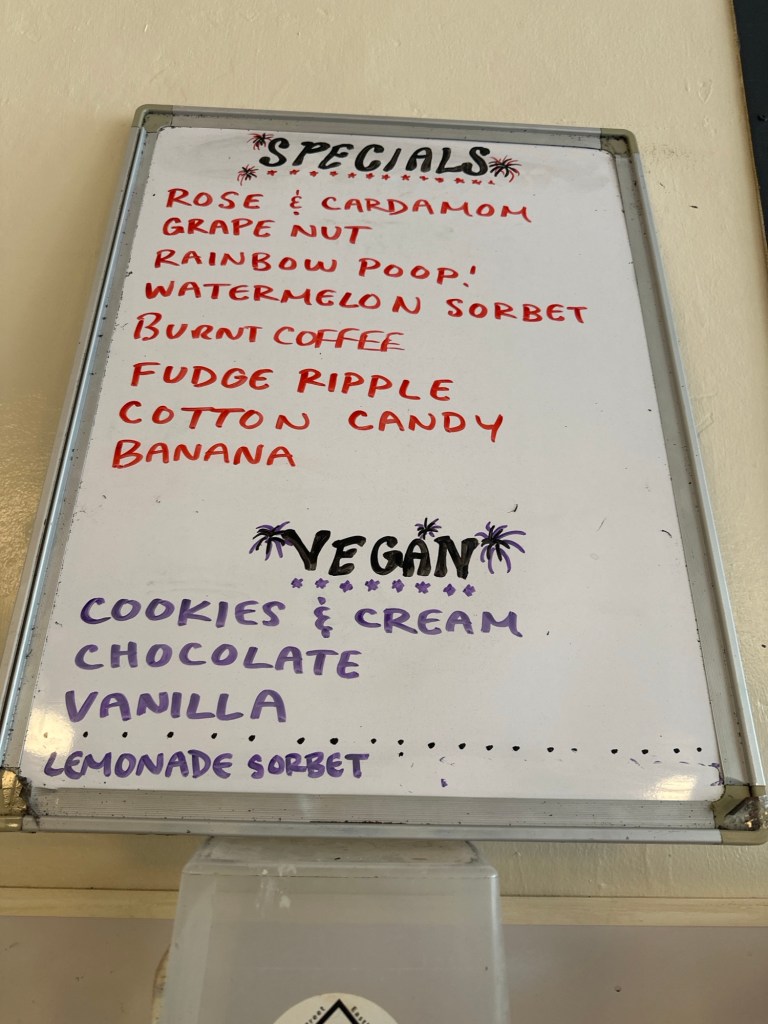 SPECIALS
ROSE & CARDAMOM
GRAPE NUT
RAINBOW POOP!
WATERMELON SORBET
BURNT COFFEE
FUDGE RIPPLE
COTTON CANDY
BANANA
VEGAN
COOKIES & CREAM
CHOCOLATE
VANILLA
LEMONADE SORBET